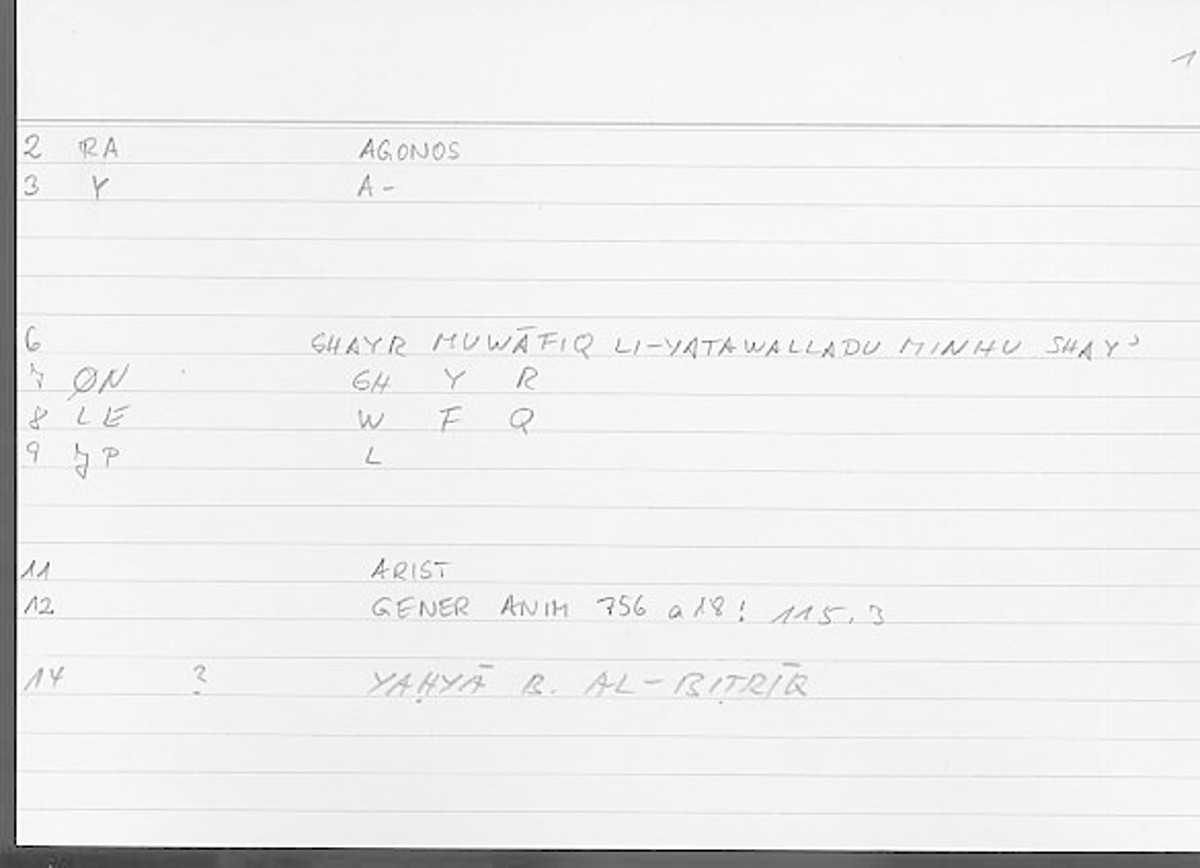 1
2 RA AGONOS
3 Y A-
6 GHAYR MUWĀFIQ LI-YATAWALLADU MINHU SHAYʾ
7 ØN GH Y R
8 LE W F Q
9 P L
11 ARIST
12 GENER ANIM 756 a 18 : 115.3
14 ? YAḤYĀ B. AL-BIṬRĪQ